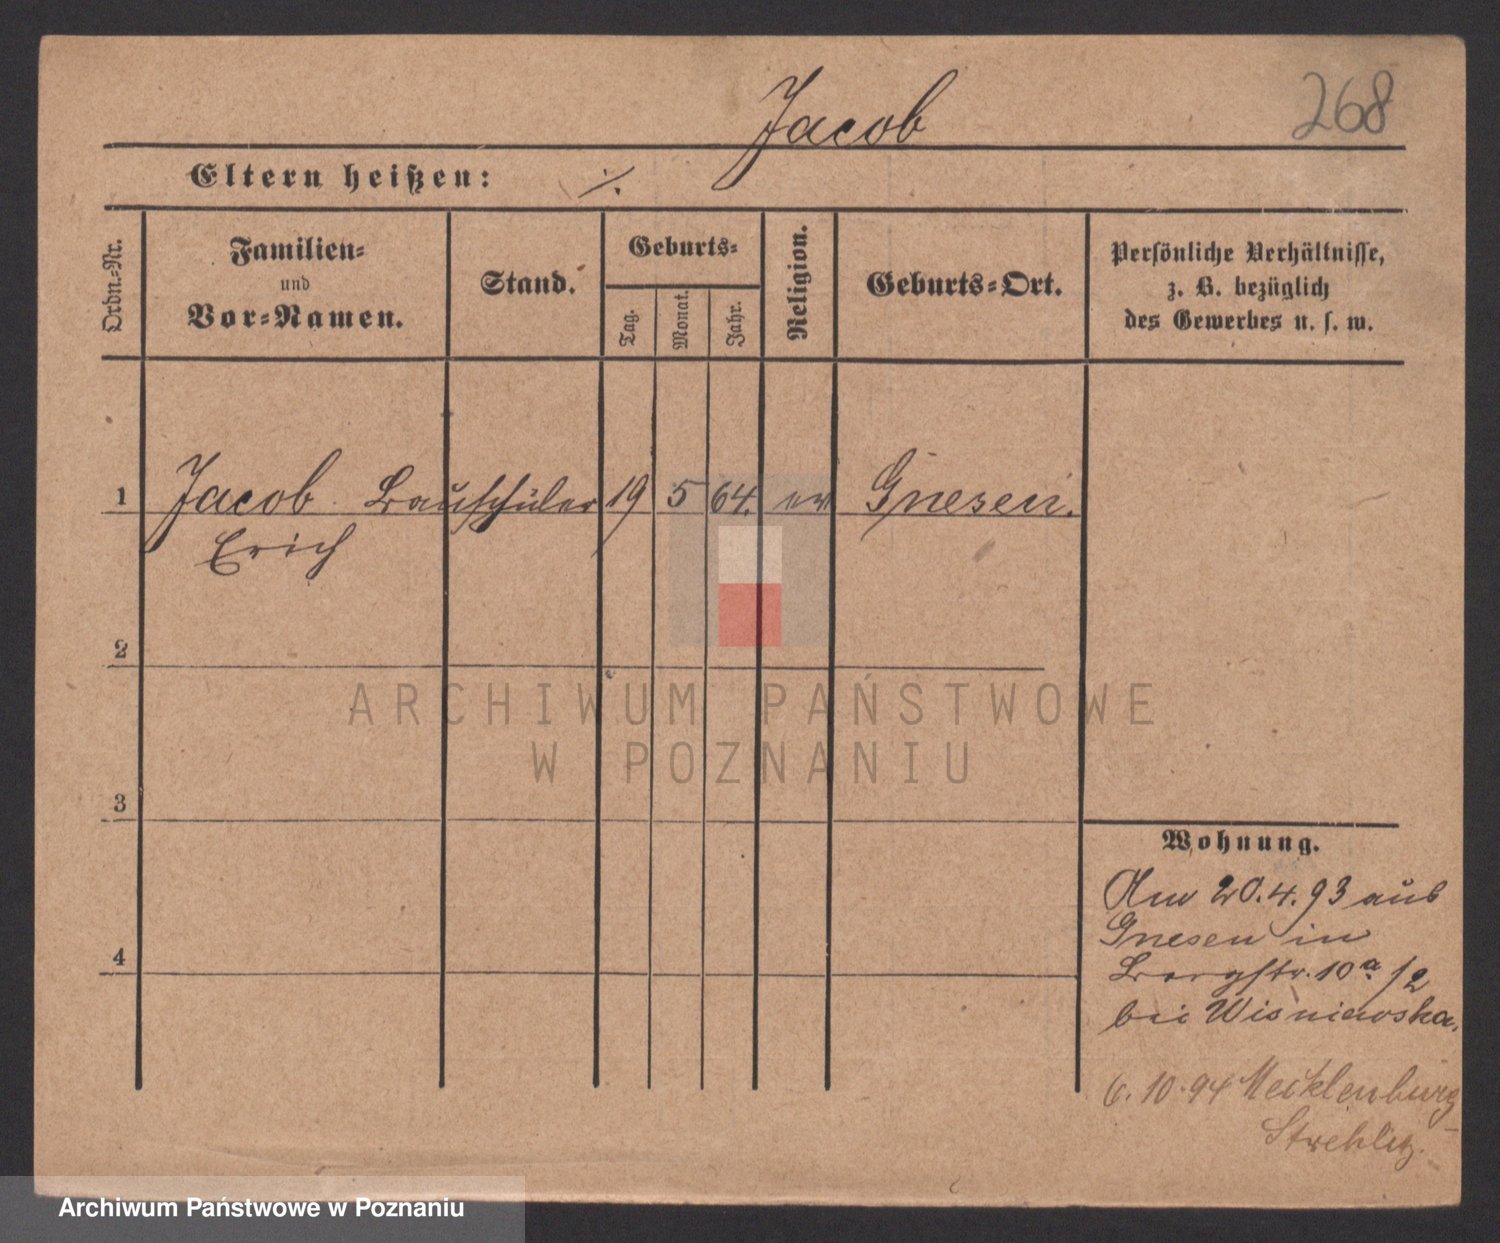 Jacob
268
Eltern heißen: ./.
Ordn.-Nr.
Familien-
und
Vor-Namen.
Stand.
Geburts-
Tag.
Monat.
Jahr.
Religion.
Geburts-Ort.
Persönliche Verhältnisse,
z. B. bezüglich
des Gewerbes u. s. w.
1 Jacob Bauschüler 19 5 64. ev Gnesen.
Erich
2
ARCHIWUM PAŃSTWOWE
W POZNANIU
3
Wohnung.
Am 20.4.93 aus
Gnesen in
4
Bergstr. 10a /2
bei Wisniewska.
6.10.94 Mecklenburg
Strehlitz.
Archiwum Państwowe w Poznaniu